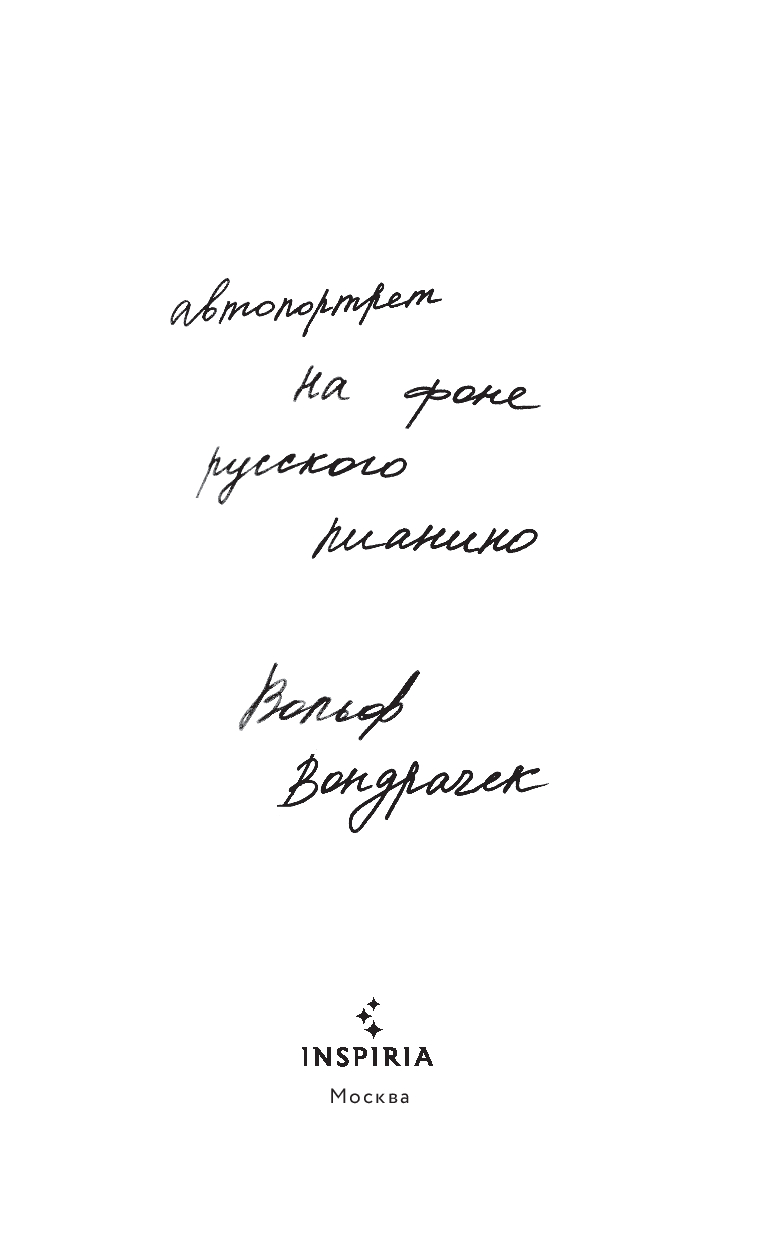 автопортрет
на фоне
русского
пианино
Вольф
Вондрачек
INSPIRIA
Москва